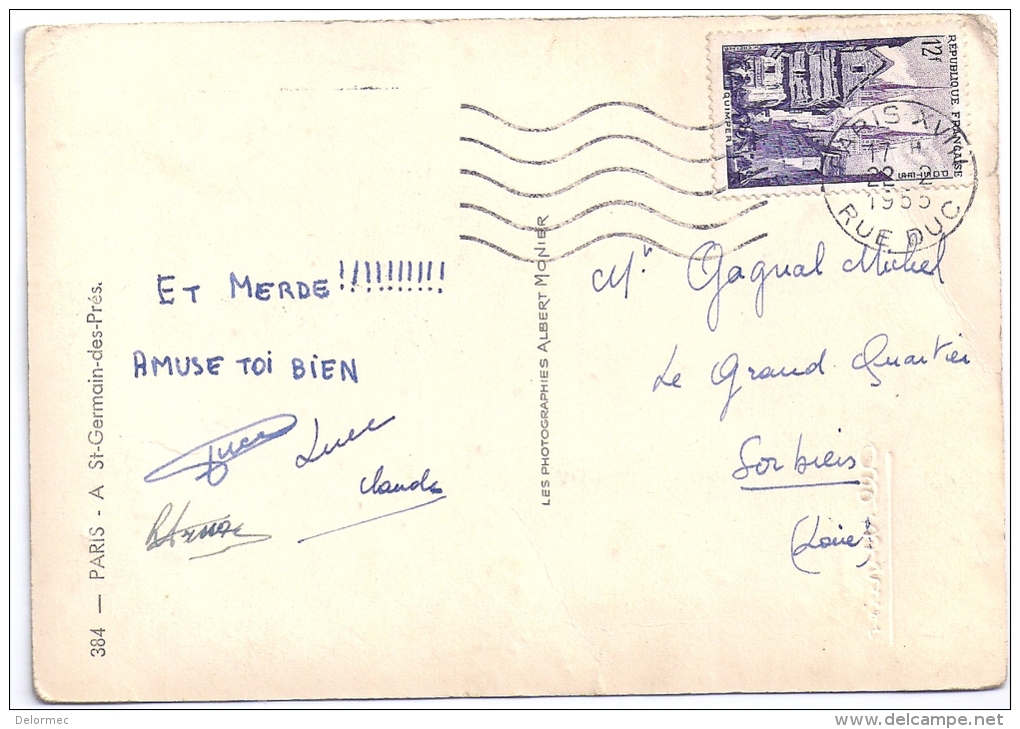 RÉPUBLIQUE FRANÇAISE
12f
QUIMPER
PARIS XVII
17 H
22-2
1955
RUE DUC
ET MERDE !!!!!!!!!!!
AMUSE TOI BIEN
Luce
Claude
Mr Gagnal Michel
Le Grand Quartier
Sorbiers
(Loire)
LES PHOTOGRAPHIES ALBERT MONIER
384 — PARIS - A St-Germain-des-Prés.
Delormec
www.delcampe.net